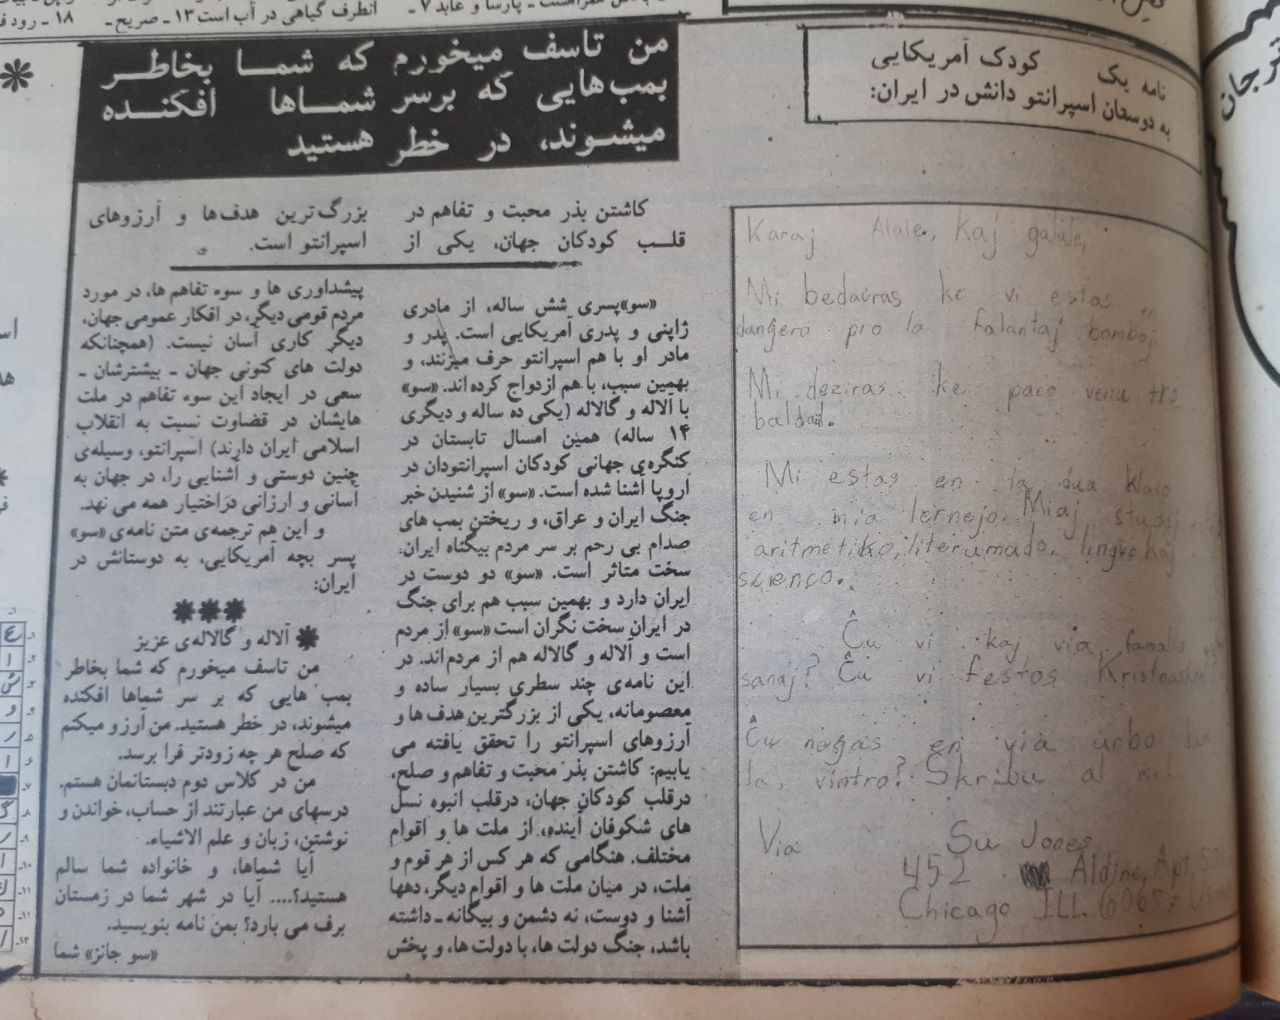 نامه یک کودک آمریکایی
به دوستان اسپرانتو دانش در ایران:
من تاسف میخورم که شما بخاطر
بمب‌هایی که برسر شماها افکنده
میشوند، در خطر هستید
کاشتن بذر محبت و تفاهم در
قلب کودکان جهان، یکی از
بزرگ‌ترین هدف‌ها و آرزوهای
اسپرانتو است.
«سو»پسری شش ساله، از مادری
ژاپنی و پدری آمریکایی است. پدر و
مادر او با هم اسپرانتو حرف میزنند، و
بهمین سبب، با هم ازدواج کرده‌اند. «سو»
با آلاله و گالاله (یکی ده ساله و دیگری
۱۴ ساله) همین امسال تابستان در
کنگره‌ی جهانی کودکان اسپرانتودان در
اروپا آشنا شده است. «سو» از شنیدن خبر
جنگ ایران و عراق، و ریختن بمب های
صدام بی رحم بر سر مردم بیگناه ایران،
سخت متاثر است. «سو» دو دوست در
ایران دارد و بهمین سبب هم برای جنگ
در ایران سخت نگران است «سو» از مردم
است و آلاله و گالاله هم از مردم‌اند. در
این نامه‌ی چند سطری بسیار ساده و
معصومانه، یکی از بزرگترین هدف ها و
آرزوهای اسپرانتو را تحقق یافته می
یابیم: کاشتن بذر محبت و تفاهم و صلح،
درقلب کودکان جهان، درقلب انبوه نسل
های شکوفان آینده، از ملت ها و اقوام
مختلف. هنگامی که هر کس از هر قوم و
ملت، در میان ملت ها و اقوام دیگر، دهها
آشنا و دوست، نه دشمن و بیگانه ـ داشته
باشد، جنگ دولت ها، با دولت ها، و پخش
پیشداوری ها و سوء تفاهم ها، در مورد
مردم قومی دیگر، در افکار عمومی جهان،
دیگر کاری آسان نیست. (همچنانکه
دولت های کنونی جهان ـ بیشترشان ـ
سعی در ایجاد این سوء تفاهم در ملت
هایشان در قضاوت نسبت به انقلاب
اسلامی ایران دارند) اسپرانتو، وسیله‌ی
چنین دوستی و آشنایی را، در جهان به
آسانی و ارزانی دراختیار همه می نهد.
و این هم ترجمه‌ی متن نامه‌ی «سو»
پسر بچه آمریکایی، به دوستانش در
ایران:
***
* آلاله و گالاله‌ی عزیز
من تاسف میخورم که شما بخاطر
بمب هایی که بر سر شماها افکنده
میشوند، در خطر هستید. من آرزو میکنم
که صلح هر چه زودتر فرا برسد.
من در کلاس دوم دبستانمان هستم.
درسهای من عبارتند از حساب، خواندن و
نوشتن، زبان و علم الاشیاء.
آیا شماها، و خانواده شما سالم
هستید؟.... آیا در شهر شما در زمستان
برف می بارد؟ بمن نامه بنویسید.
«سو جانز» شما
Karaj Alale, Kaj galale,
Mi bedaŭras ke vi estas en
danĝero pro la falantaj bomboj
Mi deziras ke paco venu tre
baldaŭ.
Mi estas en la dua klaso
en mia lernejo. Miaj studoj
aritmetiko, literumado, lingvo kaj
scienco.
Ĉu vi kaj via familio
sanaj? Ĉu vi festos
Ĉu neĝas en via urbo
la vintro? Skribu al mi!
Via Su Jones
452 Aldine, Apt,
Chicago ILL. 60657